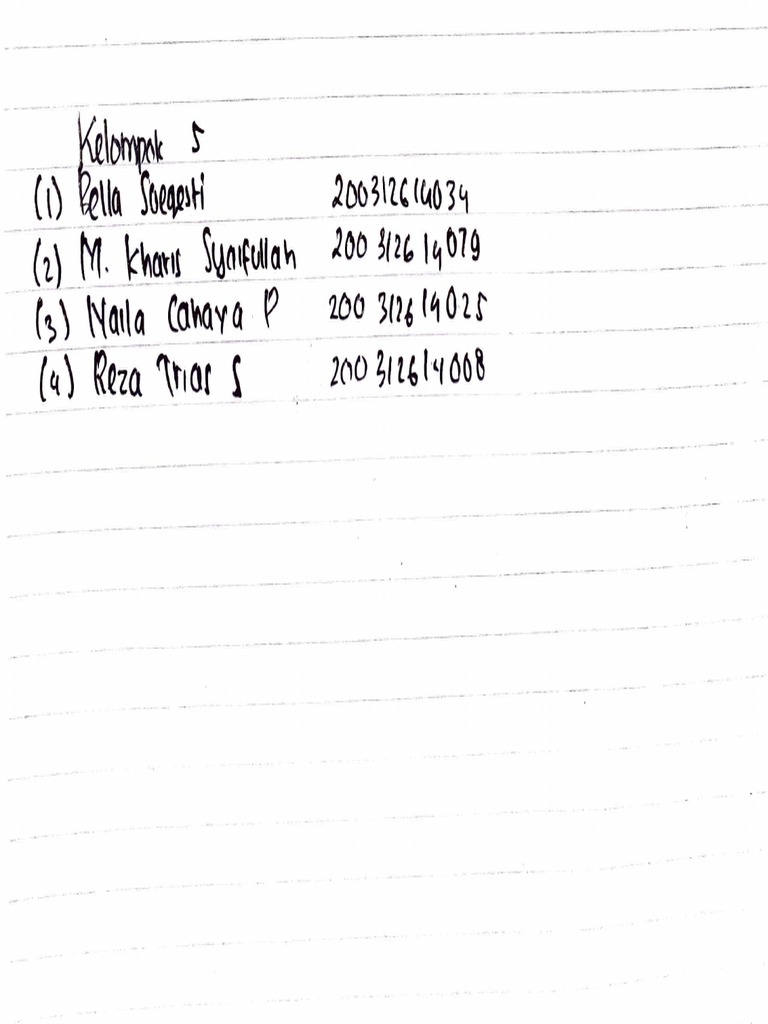 Kelompok 5
(1) Bella Soegesti 200312614034
(2) M. Kharis Syaifullah 200 312614079
(3) Naila Cahaya P 200 312614025
(4) Reza Trias S 200 312614008